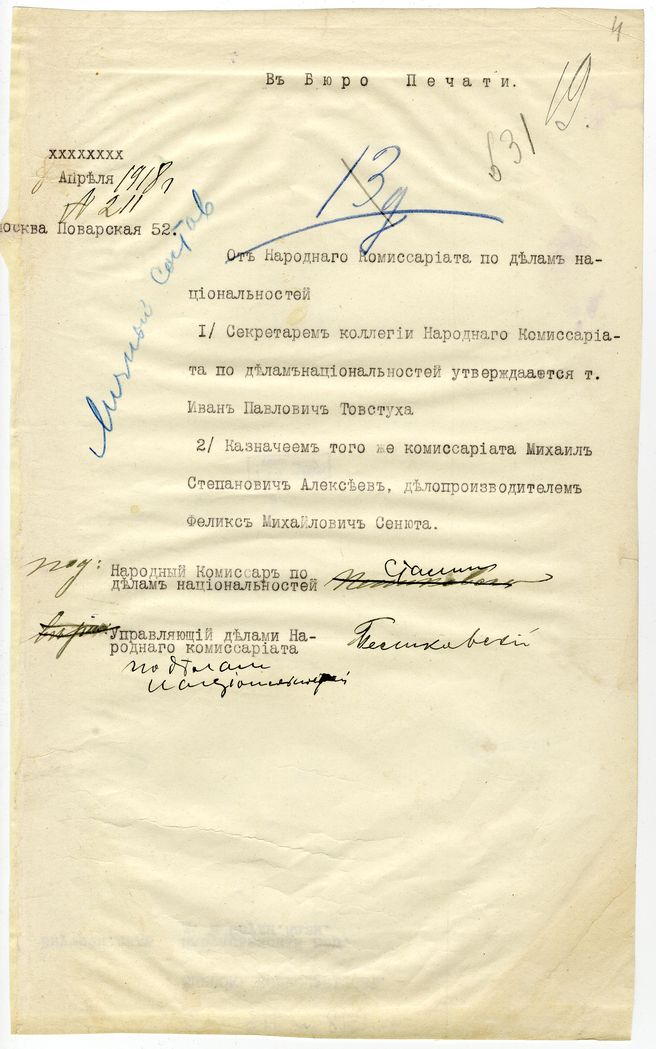 4
Въ Бюро Печати.
19.
531
13
д
хххххххх
Апрѣля 1918 г
№ 211
Москва Поварская 52.
Личный состав
Отъ Народнаго Комиссаріата по дѣламъ на-
ціональностей
I/ Секретаремъ коллегіи Народнаго Комиссаріа-
та по дѣламънаціональностей утверждааятся т.
Иванъ Павловичъ Товстуха
2/ Казначеемъ того же комиссаріата Михаилъ
Степановичъ Алексѣевъ, дѣлопроизводителемъ
Феликсъ Михайловичъ Сенюта.
под: Народный Комиссаръ по
дѣламъ національностей Сталин
Управляющій дѣлами На-
роднаго комиссаріата
по дѣлам
національностей